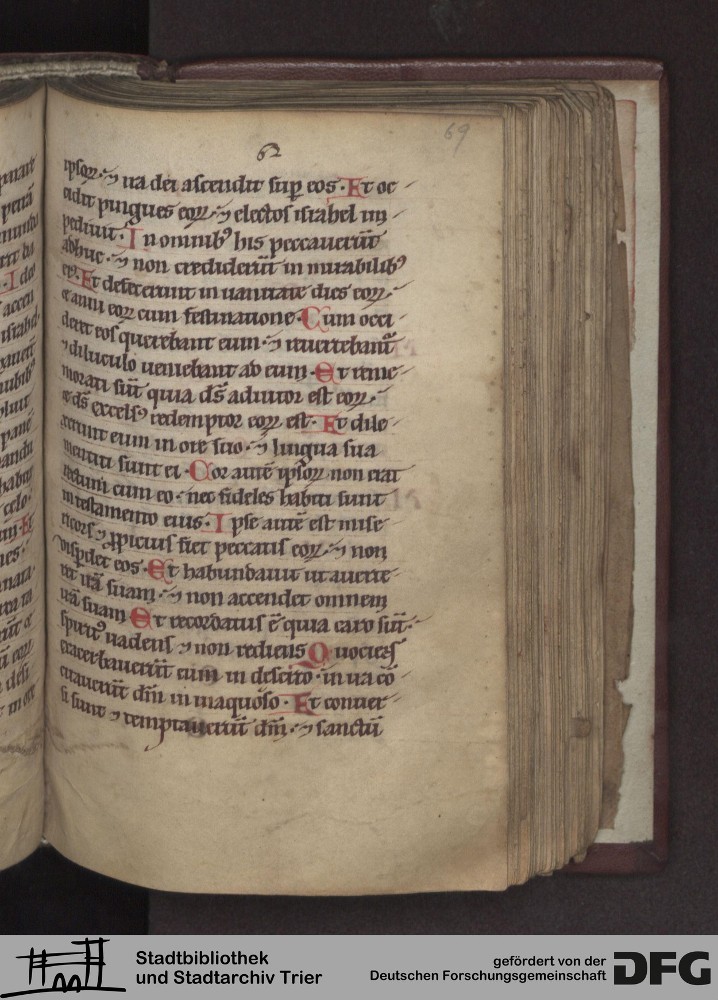 69
62
ipsoꝝ · ⁊ ira dei ascendit suꝑ eos · Et oc
cidit pingues eoꝝ · ⁊ electos israhel im
pediuit · In omnibꝰ his peccauerūt
adhuc · ⁊ non crediderūt in mirabilibꝰ
eiꝰ · Et defecerunt in uanitate dies eoꝝ ·
et anni eoꝝ cum festinatione · Cum occi
deret eos querebant eum · ⁊ reuertebant᷑
⁊ diluculo ueniebant ad eum · Et reme
morati sūt quia ds̄ adiutor est eoꝝ ·
et ds̄ excelsꝰ redemptor eoꝝ est · Et dile
xerunt eum in ore suo · ⁊ lingua sua
mentiti sunt ei · Cor autē ipsoꝝ non erat
rectum cum eo · nec fideles habiti sunt
in testamento eius · Ipse autē est mise
ricors ⁊ ꝓpicius fiet peccatis eoꝝ · ⁊ non
disꝑdet eos · Et habundauit ut auerte
ret irā suam · ⁊ non accendet omnem
irā suam Et recordatus ē quia caro sūt ·
spiritꝰ uadens ⁊ non rediens Quociens
exacerbauerūt eum in deserto · in ira cō
citauerūt dm̄ in inaquoso · Et conuer
si sunt ⁊ temptauerūt dm̄ · ⁊ sanctū
Stadtbibliothek
und Stadtarchiv Trier
gefördert von der
Deutschen Forschungsgemeinschaft
DFG